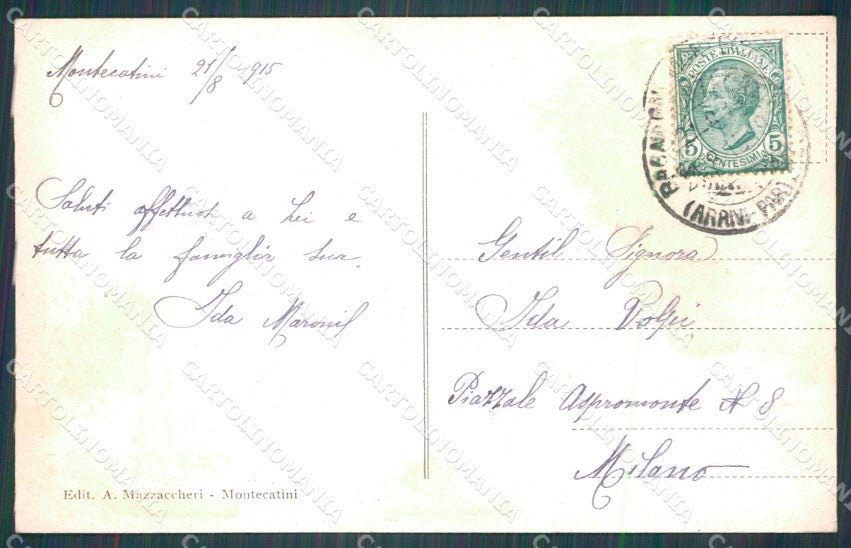 Montecatini 21/8 915
Saluti affettuosi a Lei e
tutta la famiglia sua.
Ida
Gentil Signora
Ida Volpi
Piazzale Aspromonte N 8
Milano
Edit. A. Mazzaccheri - Montecatini
POSTE ITALIANE
5 CENTESIMI 5
CARTOLINOMANIA